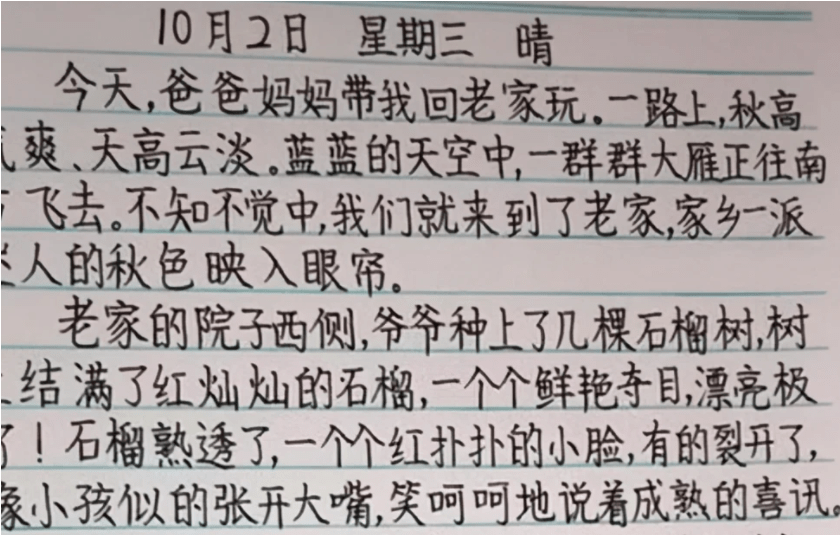 10月2日 星期三 晴
今天,爸爸妈妈带我回老家玩。一路上,秋高
气爽、天高云淡。蓝蓝的天空中,一群群大雁正往南
飞去。不知不觉中,我们就来到了老家,家乡一派
人的秋色映入眼帘。
老家的院子西侧,爷爷种上了几棵石榴树,树
上结满了红灿灿的石榴,一个个鲜艳夺目,漂亮极
了!石榴熟透了,一个个红扑扑的小脸,有的裂开了,
像小孩似的张开大嘴,笑呵呵地说着成熟的喜讯。